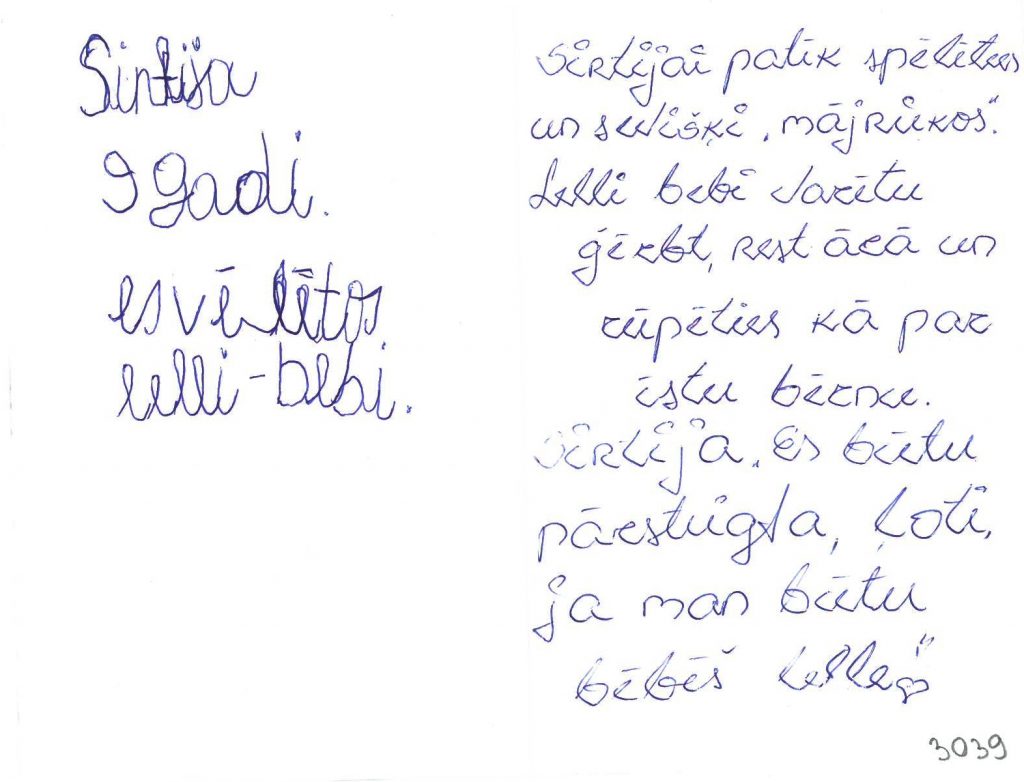 Sintija
9 gadi.
es vēlētos
lelli-bebi.
Sintijai patīk spēlēties
un sevišķi „mājniekos".
Lelli bebi varētu
ģērbt, nest ārā un
rūpēties kā par
īstu bērnu.
Sintija „Es būtu
pārsteigta, ļoti,
ja man būtu
bēbēš lelle"
3039